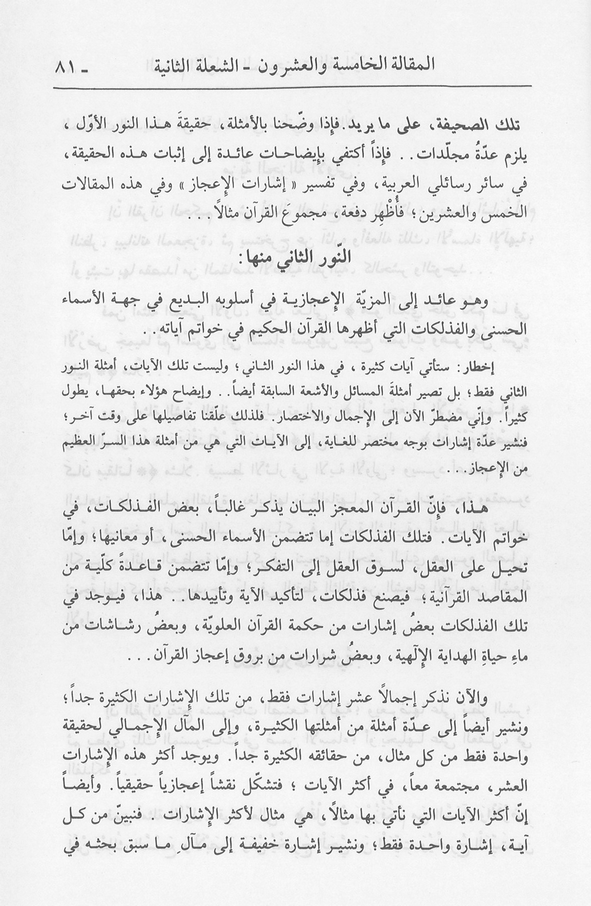 المقالة الخامسة والعشرون - الشعلة الثانية
ـ ٨١
تلك الصحيفة، على ما يريد. فإذا وضّحنا بالأمثلة، حقيقةَ هذا النور الأوّل،
يلزم عدّةُ مجلّدات.. فإذاً أكتفي بإيضاحات عائدة إلى إثبات هذه الحقيقة،
في سائر رسائلي العربية، وفي تفسير «إشارات الإعجاز» وفي هذه المقالات
الخَمس والعشرين؛ فأُظْهِر دفعة، مجموعَ القرآن مثالاً...
النّور الثاني منها:
وهو عائد إلى المزيّة الإعجازية في أسلوبه البديع في جهة الأسماء
الحسنى والفذلكات التي أظهرها القرآن الحكيم في خواتم آياته..
إخطار: ستأتي آيات كثيرة، في هذا النور الثاني؛ وليست تلك الآيات، أمثلة النور
الثاني فقط؛ بل تصير أمثلةَ المسائل والأشعة السابقة أيضاً.. وإيضاح هؤلاء بحقها، يطول
كثيراً. وإنّي مضطرّ الآن إلى الإجمال والاختصار. فلذلك علّقنا تفاصيلها على وقت آخر؛
فنشير عدّة إشارات بوجه مختصر للغاية، إلى الآيـات التي هي من أمثلة هذا السرّ العظيم
من الإعجاز...
هـذا، فإنّ القرآن المعجز البيان يذكـر غالبـاً، بعض الفذلكات، في
خواتم الآيات. فتلك الفذلكات إما تتضمن الأسماء الحسنى، أو معانيها؛ وإمّا
تحيـل على العقل، لسوق العقل إلى التفكـر؛ وإمّا تتضمن قـاعـدةً كلّيـة من
المقاصد القرآنية؛ فيصنع فذلكات، لتأكيد الآية وتأييدها.. هذا، فيـوجد في
تلك الفذلكات بعضُ إشارات من حكمة القرآن العلويّة، وبعض رشاشات من
ماءِ حياةِ الهداية الإلٓهية، وبعضُ شرارات من بروق إعجاز القرآن...
والآن نذكر إجمالاً عشر إشارات فقط، من تلك الإشارات الكثيرة جداً؛
ونشير أيضاً إلى عـدّة أمثلة من أمثلتها الكثيـرة، وإلى المآل الإجمـالي لحقيقة
واحدة فقط من كل مثال، من حقائقه الكثيرة جداً. ويوجد أكثر هذه الإشارات
العشر، مجتمعة معاً، في أكثر الآيات؛ فتشكّل نقشاً إعجازياً حقيقياً. وأيضـاً
إنّ أكثر الآيات التي نأتي بها مثالاً، هي مثال لأكثر الإشارات. فنبينّ من كـل
آيـة، إشارة واحدة فقط؛ ونشيـر إشارة خفيفة إلى مـآلِ مـا سبق بحثه في